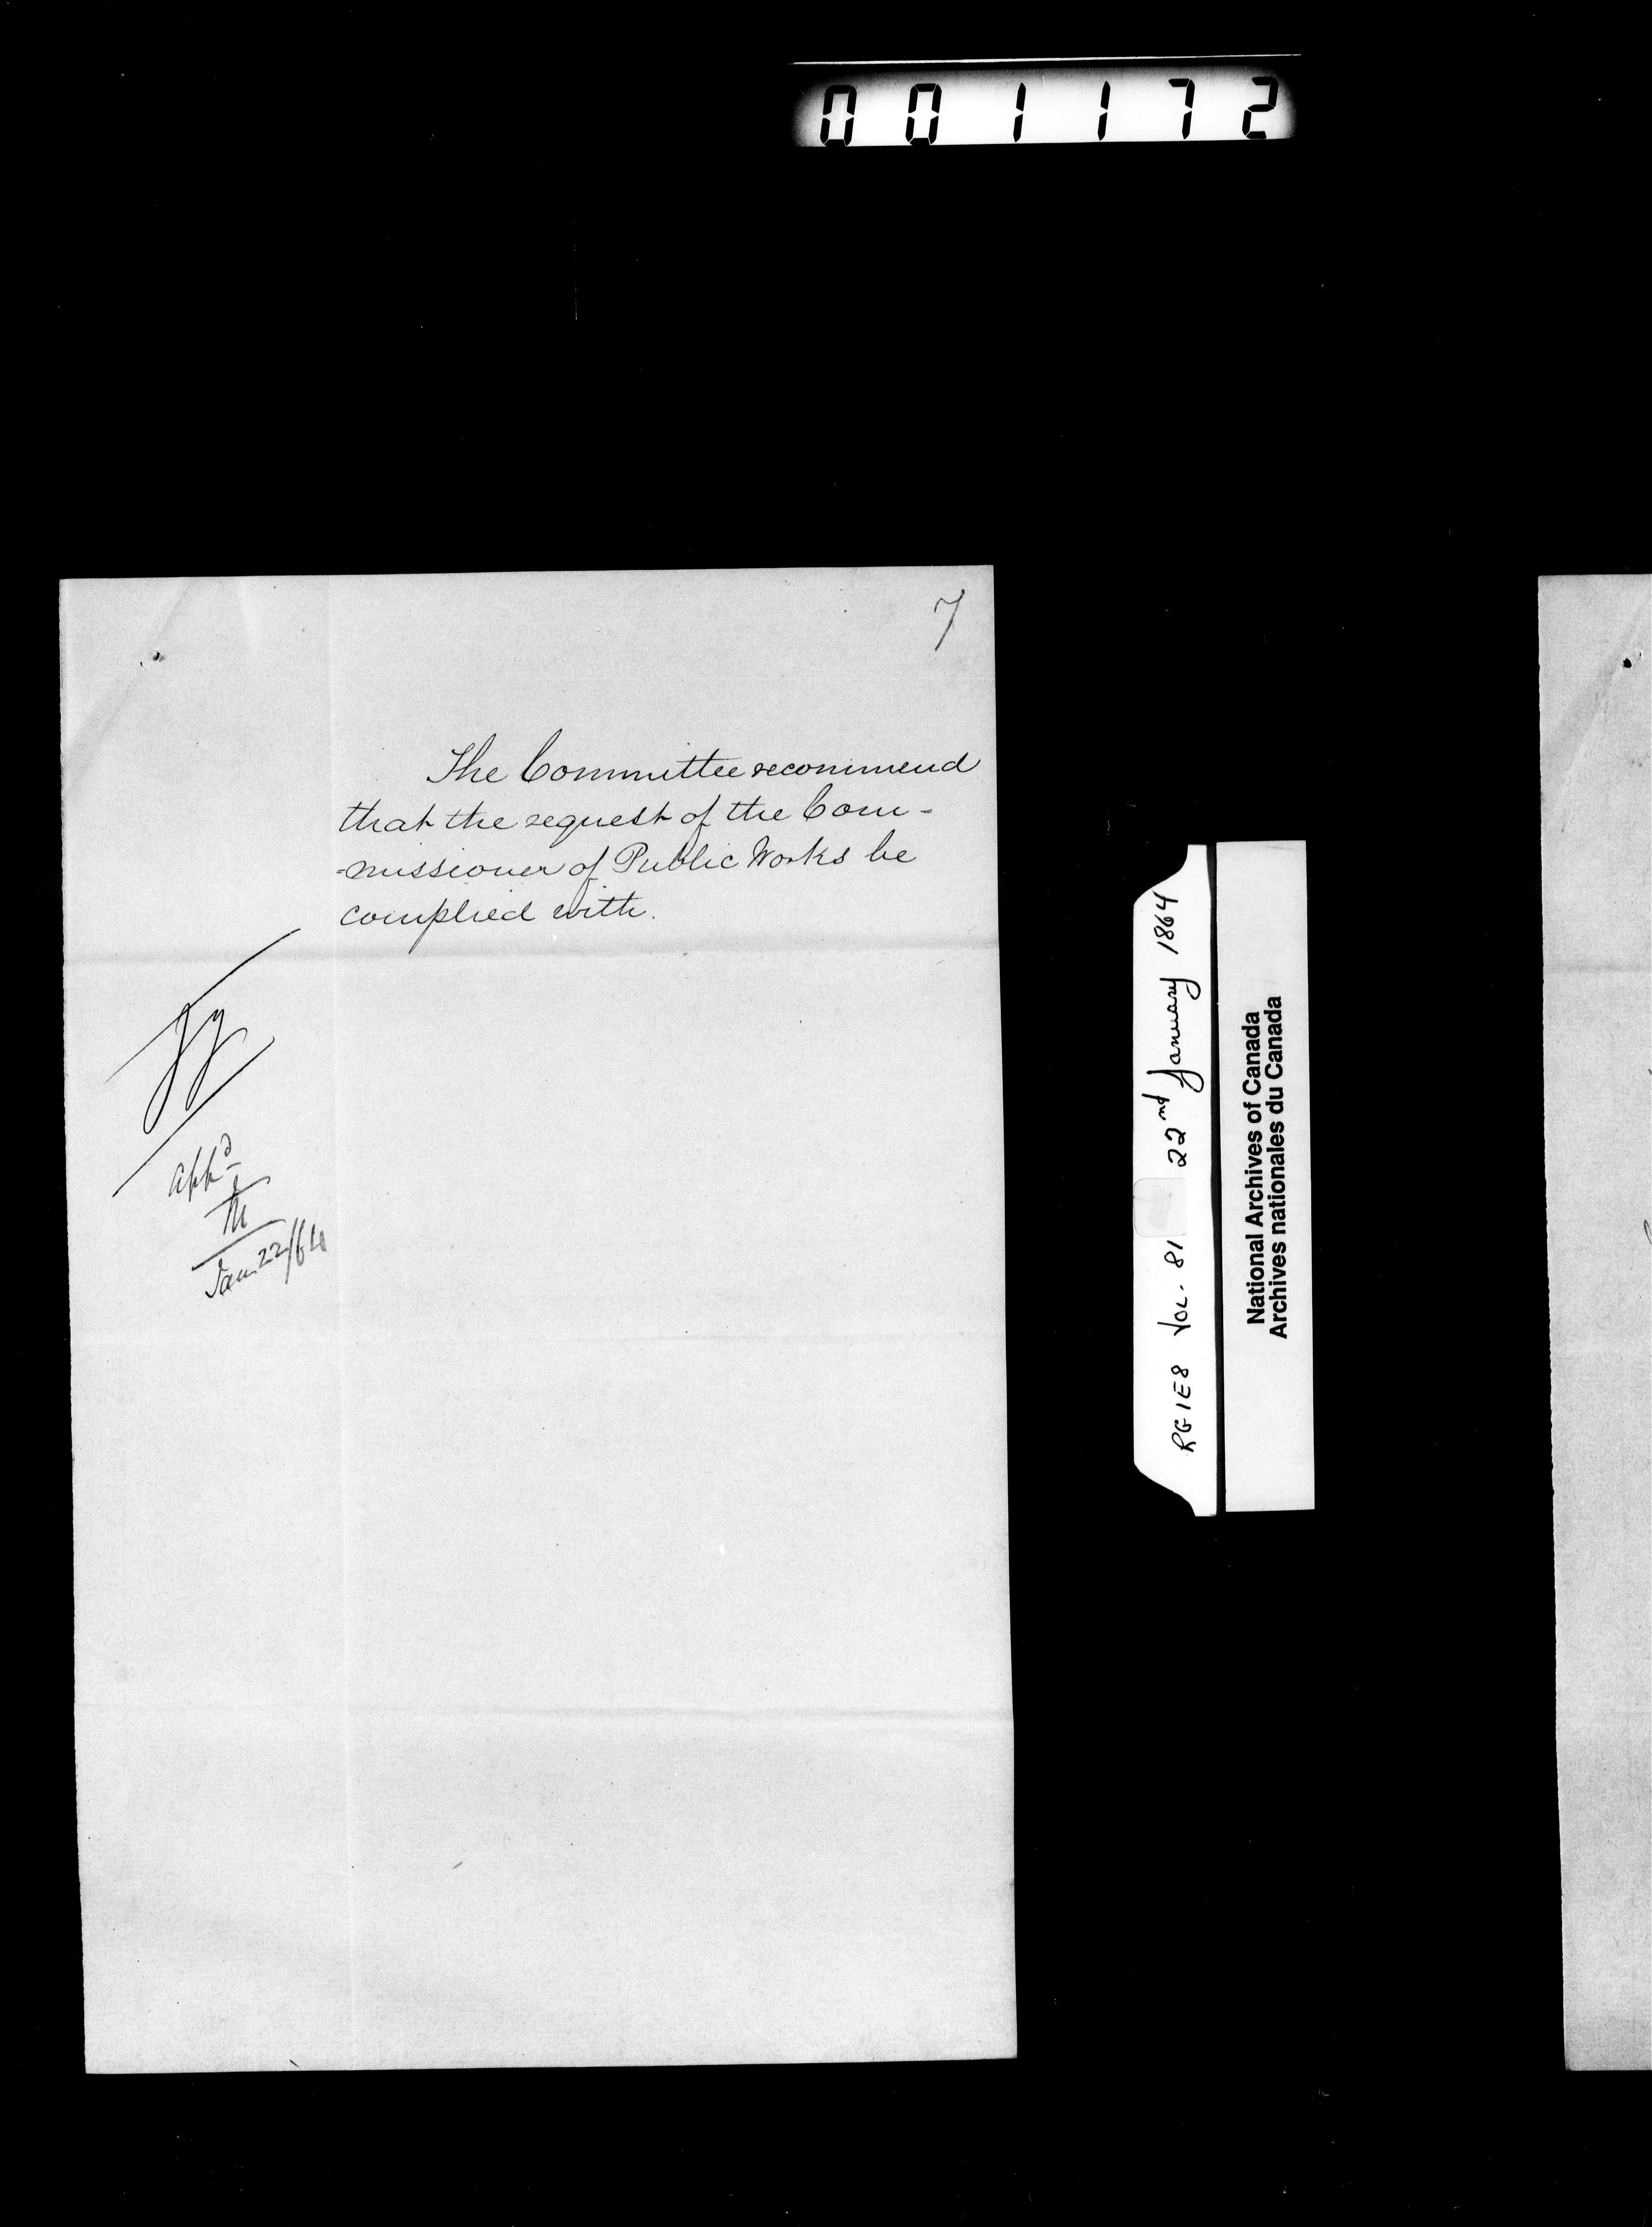 001172
7
The Committee recommend
that the request of the Com-
-missioner of Public Works be
complied with.
appd
M
Jan 22/64
RG1E8 VOL. 81 22nd January 1864
National Archives of Canada
Archives nationales du Canada